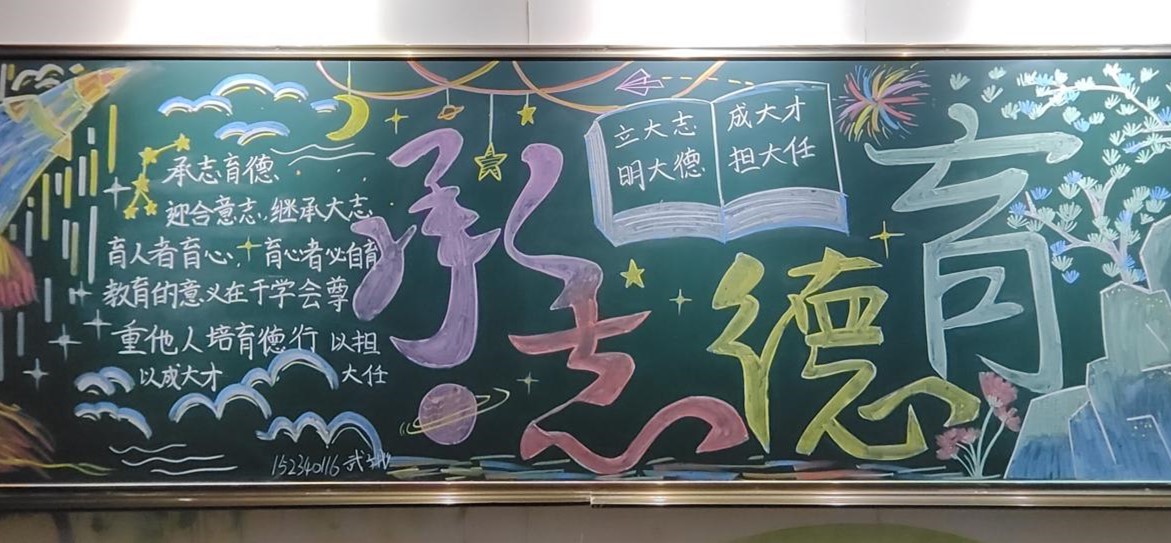 承志育德
迎合意志，继承大志
育人者育心，育心者必自育
教育的意义在于学会尊
重他人培育德行 以担
以成大才 大任
152340116
承志德育
立大志
明大德
成大才
担大任